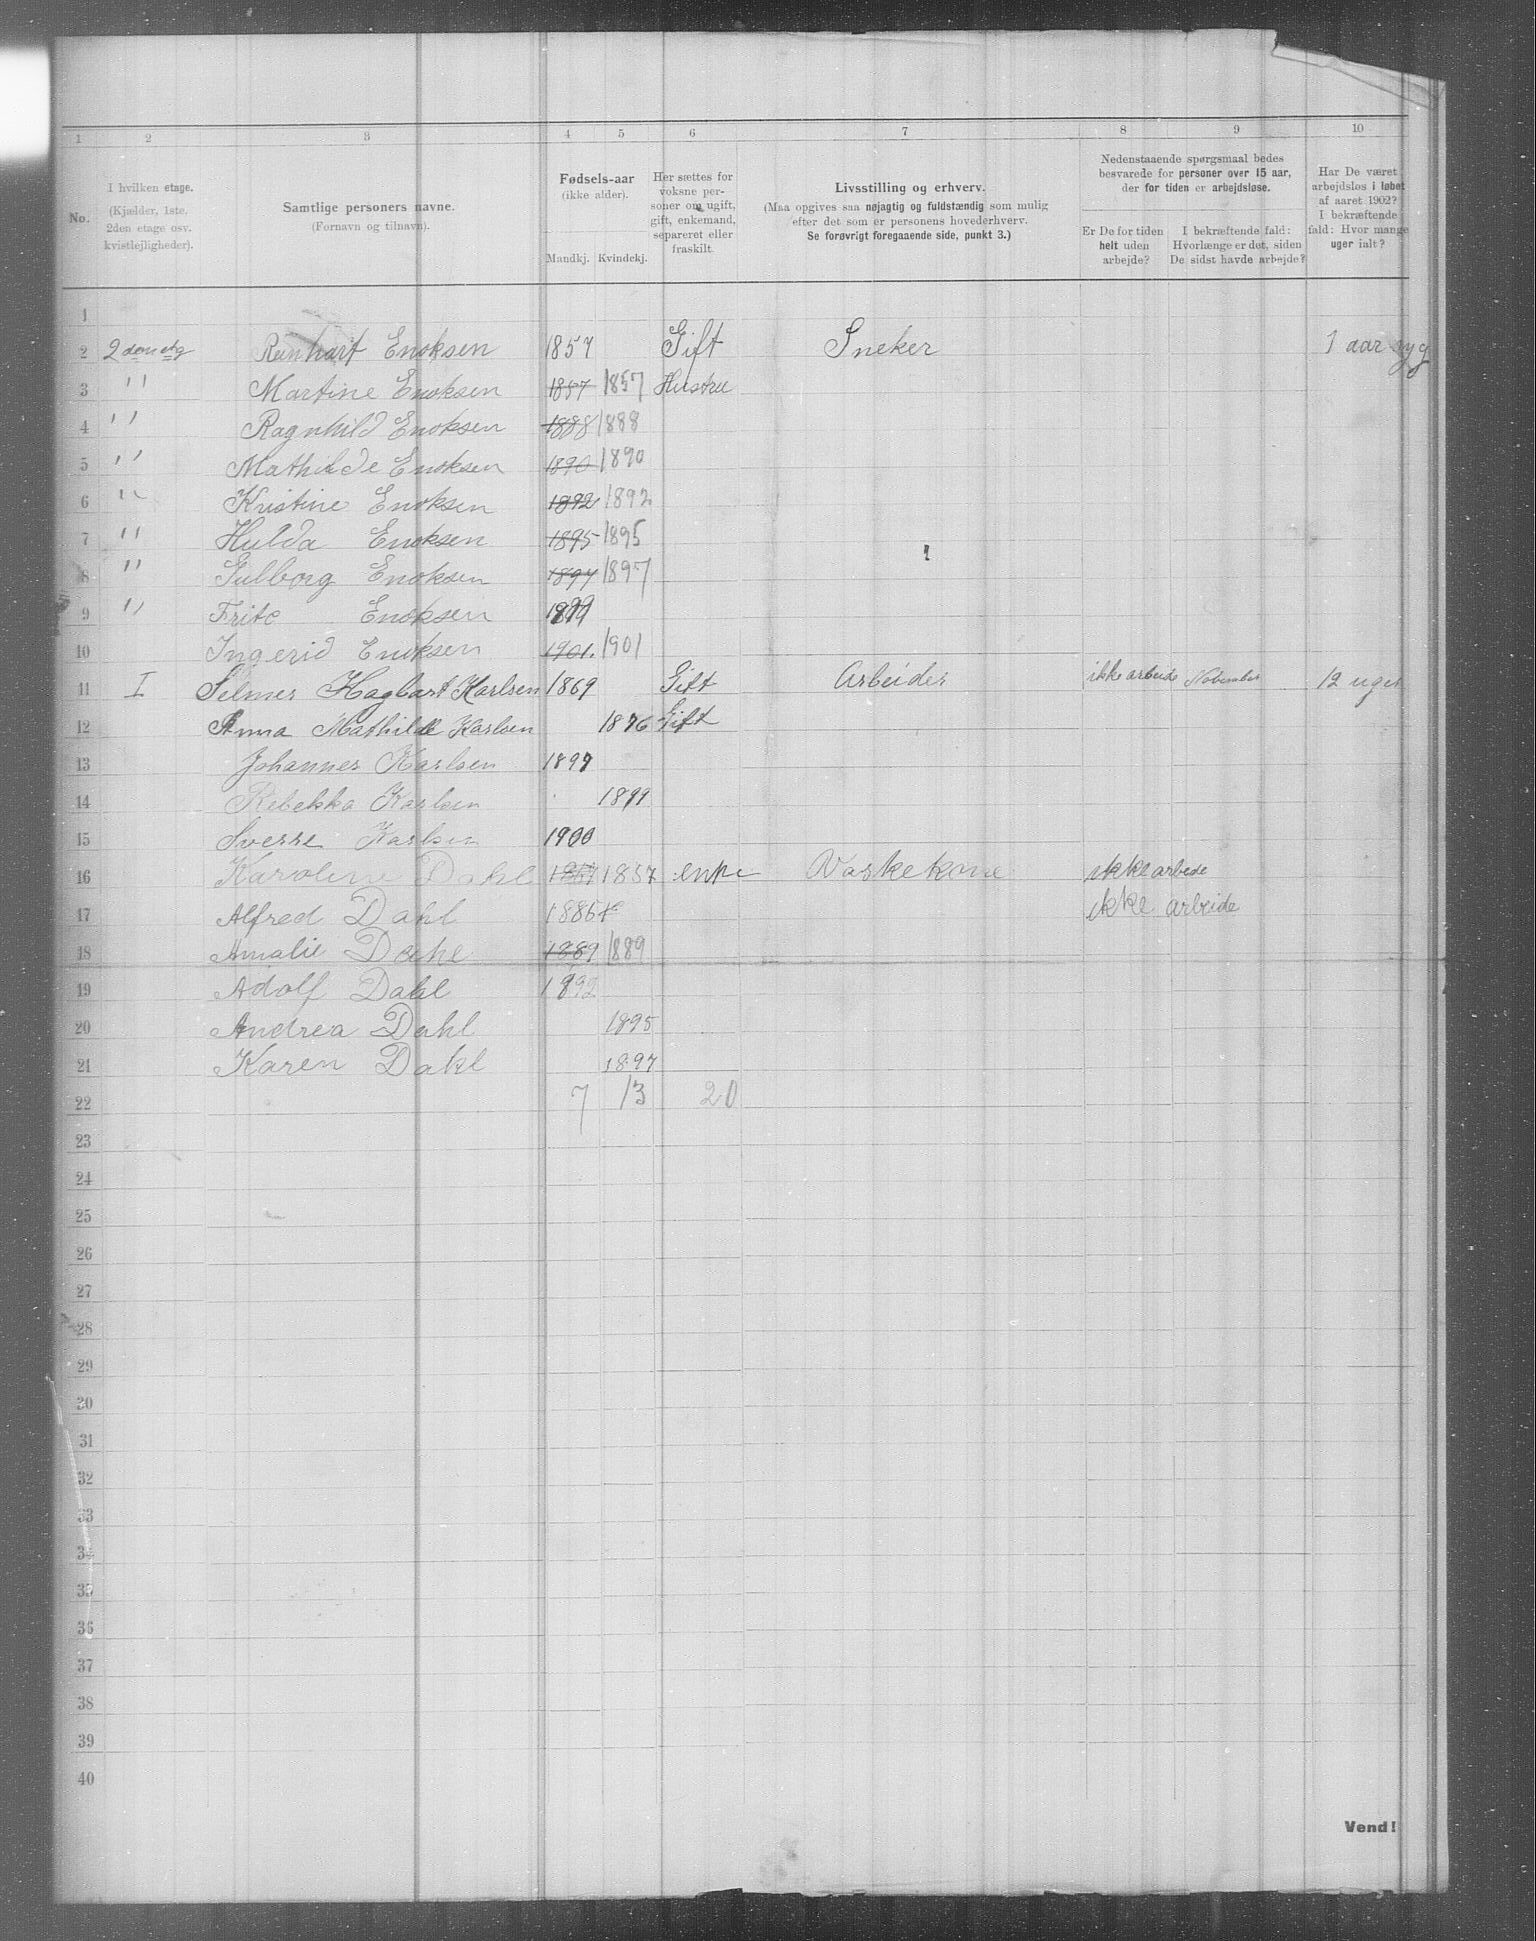 1 2 3 4 5 6 7 8 9 10
No.
I hvilken etage.
(Kjælder, 1ste.
2den etage osv.
kvistlejligheder).
Samtlige personers navne.
(Fornavn og tilnavn).
Fødsels-aar
(ikke alder).
Mandkj. Kvindekj.
Her sættes for
voksne per-
soner om ugift,
gift, enkemand,
separeret eller
fraskilt.
Livsstilling og erhverv.
(Maa opgives saa nøjagtig og fuldstændig som mulig
efter det som er personens hovederhverv.
Se forøvrigt foregaaende side, punkt 3.)
Nedenstaaende spørgsmaal bedes
besvarede for personer over 15 aar,
der for tiden er arbejdsløse.
Er De for tiden
helt uden
arbejde?
I bekræftende fald:
Hvorlænge er det, siden
De sidst havde arbejde?
Har De været
arbejdsløs i løbet
af aaret 1902?
I bekræftende
fald: Hvor mange
uger ialt?
1
2 2den etg Reinhart Enoksen 1857 Gift Sneker 1 aar syg
3 " Martine Enoksen 1857 1857 Hustru
4 " Ragnhild Enoksen 1888 1888
5 " Mathilde Enoksen 1890 1890
6 " Kristine Enoksen 1892 1892
7 " Hulda Enoksen 1895 1895
8 " Gulborg Enoksen 1897 1897
9 " Fritz Enoksen 1899
10 Ingerid Enoksen 1901. 1901
11 I Selmer Hagbart Karlsen 1869 Gift Arbeider ikke arbeide November 12 uger
12 Anna Mathilde Karlsen 1876 Gift
13 Johannes Karlsen 1897
14 Rebekka Karlsen 1899
15 Sverre Karlsen 1900
16 Karoline Dahl 1857 1857 enke Vaskekone ikke arbede
17 Alfred Dahl 1886 ikke arbeide
18 Amalie Dahl 1889 1889
19 Adolf Dahl 1892
20 Andrea Dahl 1895
21 Karen Dahl 1897
22 7 13 20
23
24
25
26
27
28
29
30
31
32
33
34
35
36
37
38
39
40
Vend!